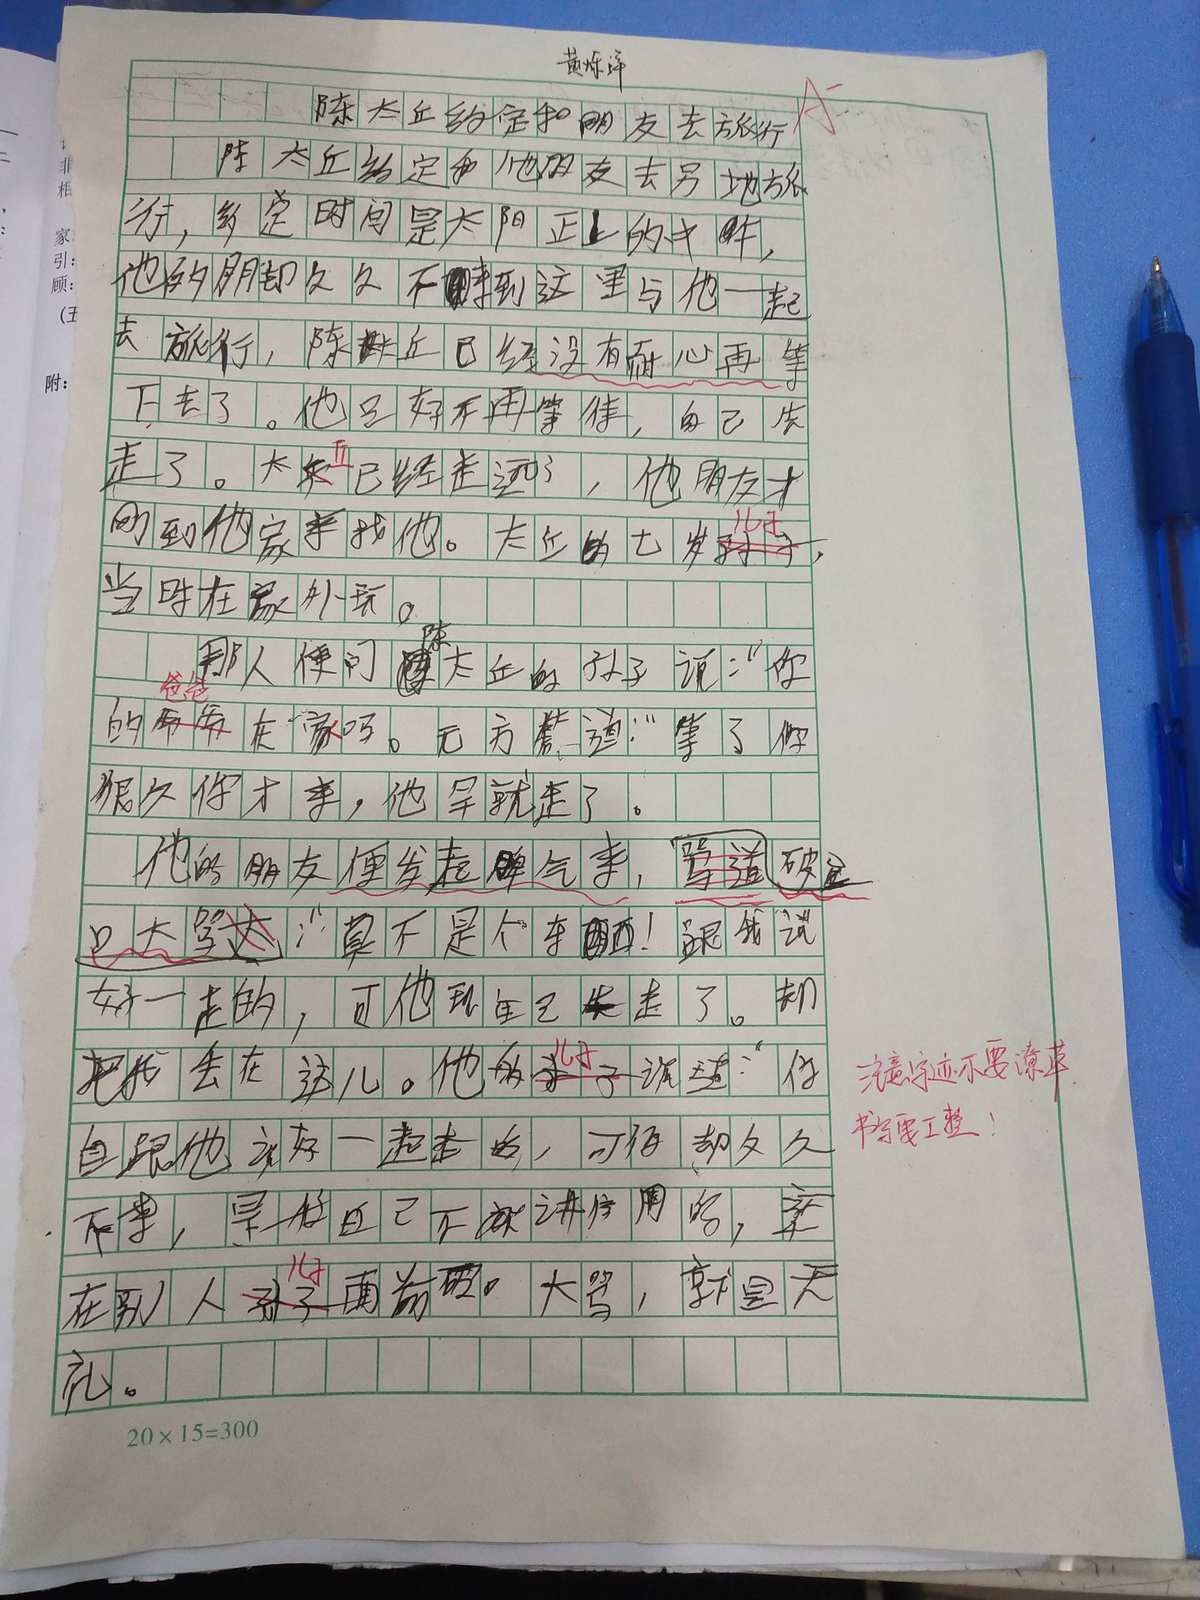 黄烁洋
A-
陈太丘约定和朋友去旅行
陈太丘约定和他朋友去另地旅
行，约定时间是太阳正上的中午，
他的朋却久久不来到这里与他一起
去旅行，陈太丘已经没有耐心再等
下去了。他只好不再等待，自己先
走了。太丘已经走远了，他朋友才
刚到他家来找他。太丘的七岁儿子，
当时在家外玩。
那人便问陈太丘的孙子说："你
的爸爸在家吗。元方答道："等了你
很久你才来，他早就走了。
他的朋友便发起脾气来，骂道破
口大骂："真不是个东西！跟我说
好一走的，可他现自己先走了。却
把我丢在这儿。他的儿子说道："你
自跟他说好一起走的，可你却久久
不来，是你自己不讲信用的，
在别人儿子面前大骂，就是无
礼。
注意字迹不要潦草
书写要工整！
20×15=300